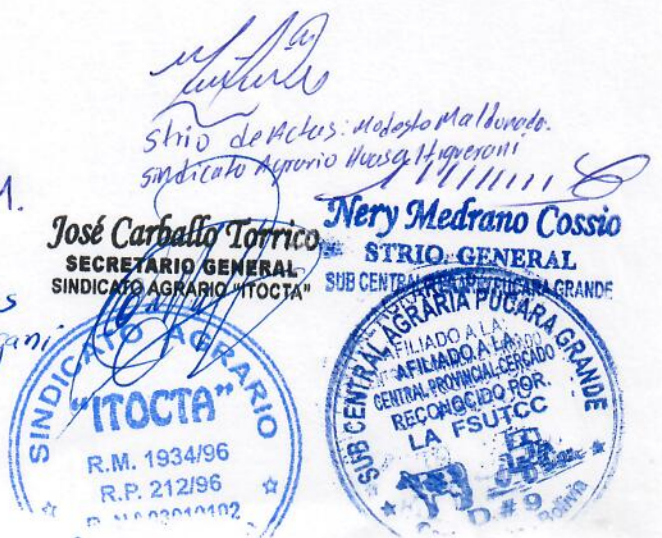 Strio de Actas: Modesto Maldonado.
Sindicato Agrario Huasa Higuerani
José Carballo Torrico
SECRETARIO GENERAL
SINDICATO AGRARIO "ITOCTA"
Nery Medrano Cossio
STRIO. GENERAL
SUB CENTRAL PUCARA GRANDE
SINDICATO AGRARIO
"ITOCTA"
R.M. 1934/96
R.P. 212/96
SUB CENTRAL AGRARIA PUCARA GRANDE
AFILIADO A LA:
CENTRAL PROVINCIAL CERCADO
RECONOCIDO POR.
LA FSUTCC
D # 9
Bolivia